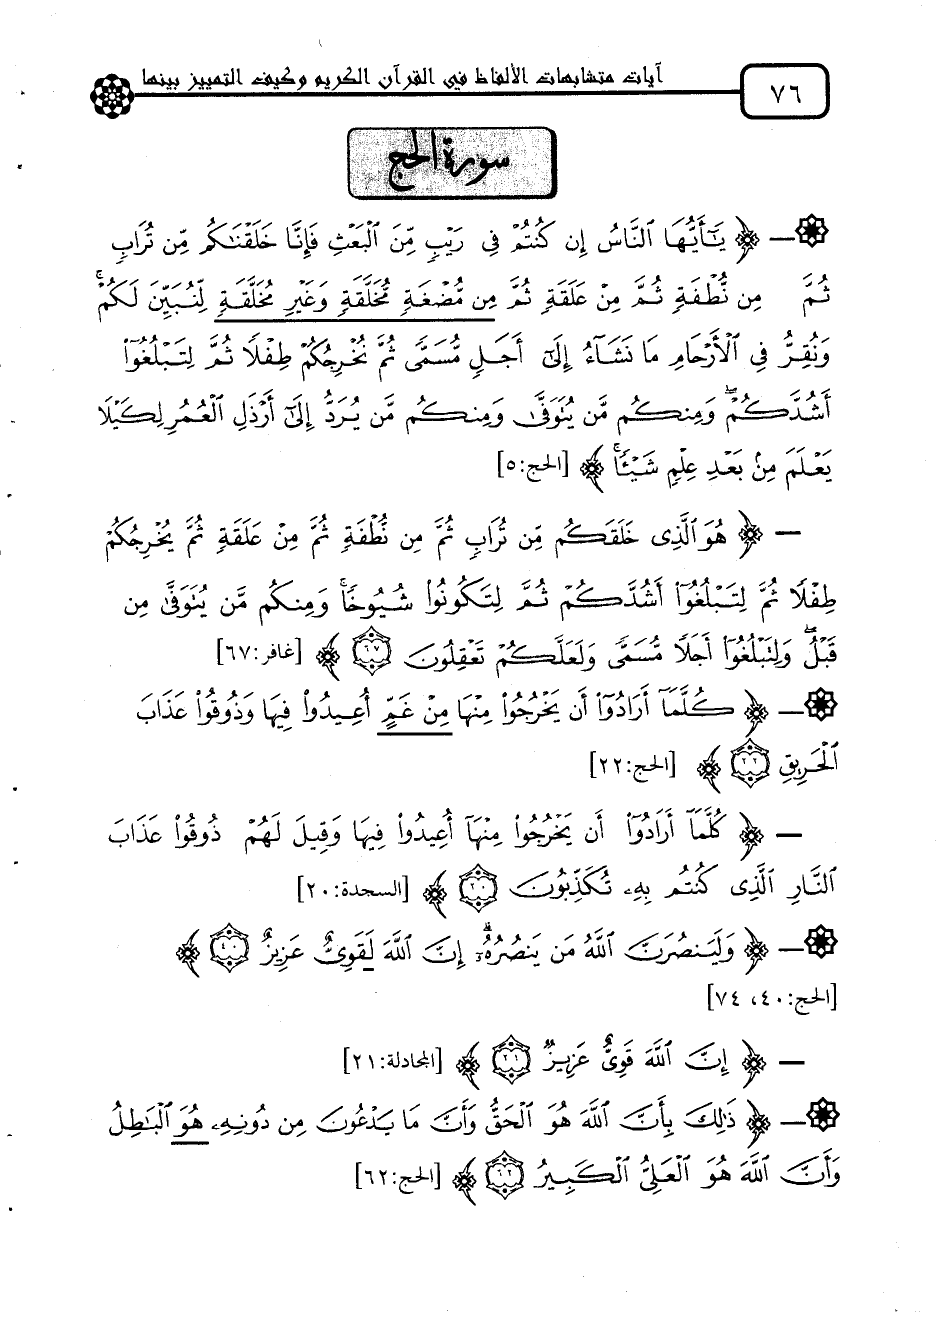 ٧٦
آيات متشابهات الألفاظ في القرآن الكريم وكيف التمييز بينها
سورة الحج
— ﴿ يَٰٓأَيُّهَا ٱلنَّاسُ إِن كُنتُمْ فِى رَيْبٍ مِّنَ ٱلْبَعْثِ فَإِنَّا خَلَقْنَٰكُم مِّن تُرَابٍ
ثُمَّ مِن نُّطْفَةٍ ثُمَّ مِنْ عَلَقَةٍ ثُمَّ مِن مُّضْغَةٍ مُّخَلَّقَةٍ وَغَيْرِ مُخَلَّقَةٍ لِّنُبَيِّنَ لَكُمْ ۚ
وَنُقِرُّ فِى ٱلْأَرْحَامِ مَا نَشَآءُ إِلَىٰٓ أَجَلٍ مُّسَمًّى ثُمَّ نُخْرِجُكُمْ طِفْلًا ثُمَّ لِتَبْلُغُوٓا۟
أَشُدَّكُمْ ۖ وَمِنكُم مَّن يُتَوَفَّىٰ وَمِنكُم مَّن يُرَدُّ إِلَىٰٓ أَرْذَلِ ٱلْعُمُرِ لِكَيْلَا
يَعْلَمَ مِنۢ بَعْدِ عِلْمٍ شَيْـًٔا ۚ ﴾ [الحج:٥]
— ﴿ هُوَ ٱلَّذِى خَلَقَكُم مِّن تُرَابٍ ثُمَّ مِن نُّطْفَةٍ ثُمَّ مِنْ عَلَقَةٍ ثُمَّ يُخْرِجُكُمْ
طِفْلًا ثُمَّ لِتَبْلُغُوٓا۟ أَشُدَّكُمْ ثُمَّ لِتَكُونُوا۟ شُيُوخًا ۚ وَمِنكُم مَّن يُتَوَفَّىٰ مِن
قَبْلُ ۖ وَلِتَبْلُغُوٓا۟ أَجَلًا مُّسَمًّى وَلَعَلَّكُمْ تَعْقِلُونَ ٦٧ ﴾ [غافر:٦٧]
— ﴿ كُلَّمَآ أَرَادُوٓا۟ أَن يَخْرُجُوا۟ مِنْهَا مِنْ غَمٍّ أُعِيدُوا۟ فِيهَا وَذُوقُوا۟ عَذَابَ
ٱلْحَرِيقِ ٢٢ ﴾ [الحج:٢٢]
— ﴿ كُلَّمَآ أَرَادُوٓا۟ أَن يَخْرُجُوا۟ مِنْهَآ أُعِيدُوا۟ فِيهَا وَقِيلَ لَهُمْ ذُوقُوا۟ عَذَابَ
ٱلنَّارِ ٱلَّذِى كُنتُم بِهِۦ تُكَذِّبُونَ ٢٠ ﴾ [السجدة:٢٠]
— ﴿ وَلَيَنصُرَنَّ ٱللَّهُ مَن يَنصُرُهُۥٓ ۗ إِنَّ ٱللَّهَ لَقَوِىٌّ عَزِيزٌ ٤٠ ﴾
[الحج:٤٠، ٧٤]
— ﴿ إِنَّ ٱللَّهَ قَوِىٌّ عَزِيزٌ ٢١ ﴾ [المجادلة:٢١]
— ﴿ ذَٰلِكَ بِأَنَّ ٱللَّهَ هُوَ ٱلْحَقُّ وَأَنَّ مَا يَدْعُونَ مِن دُونِهِۦ هُوَ ٱلْبَٰطِلُ
وَأَنَّ ٱللَّهَ هُوَ ٱلْعَلِىُّ ٱلْكَبِيرُ ٦٢ ﴾ [الحج:٦٢]